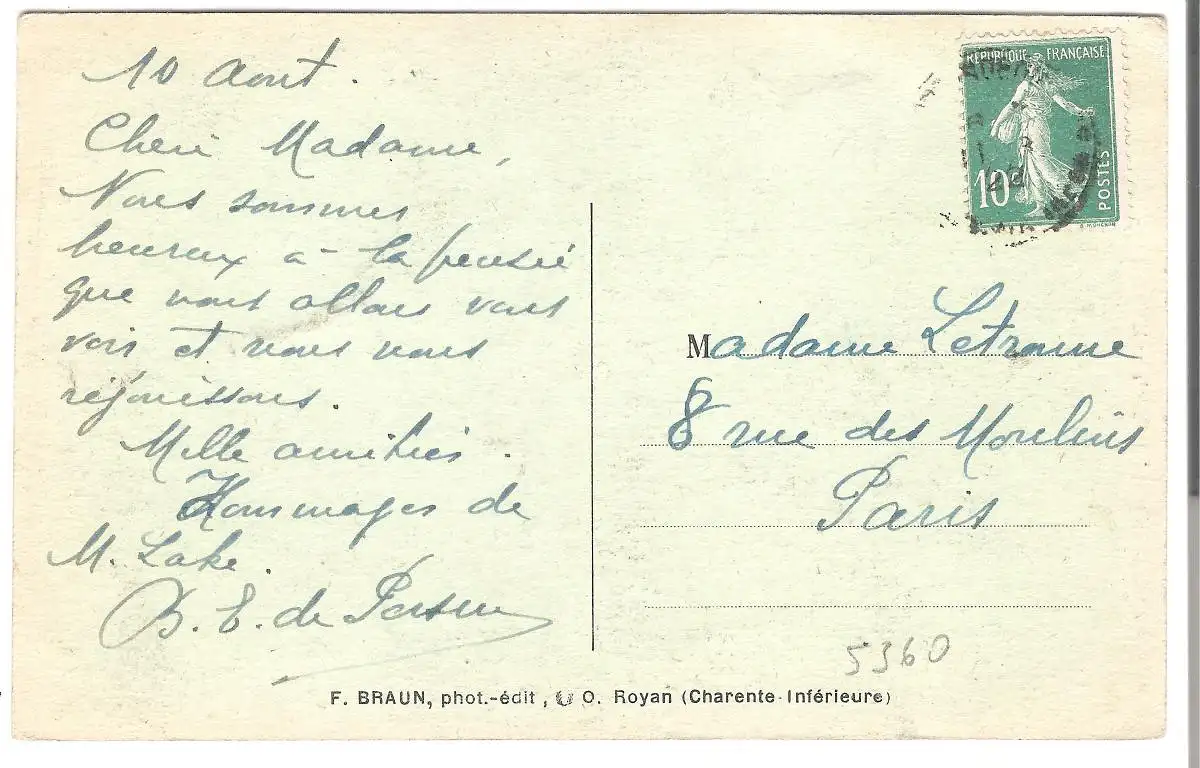 10 Aout.
Cheri Madame,
Nous sommes
heureux à la pensée
que nous allons vous
voir et nous nous
réjouissons.
Mille amitiés.
Hommages de
M. Lake.
B. E. de
RÉPUBLIQUE FRANÇAISE
10c
POSTES
Madame Letrome
8 rue des Moulins
Paris
5360
F. BRAUN, phot.-édit, O. Royan (Charente-Inférieure)